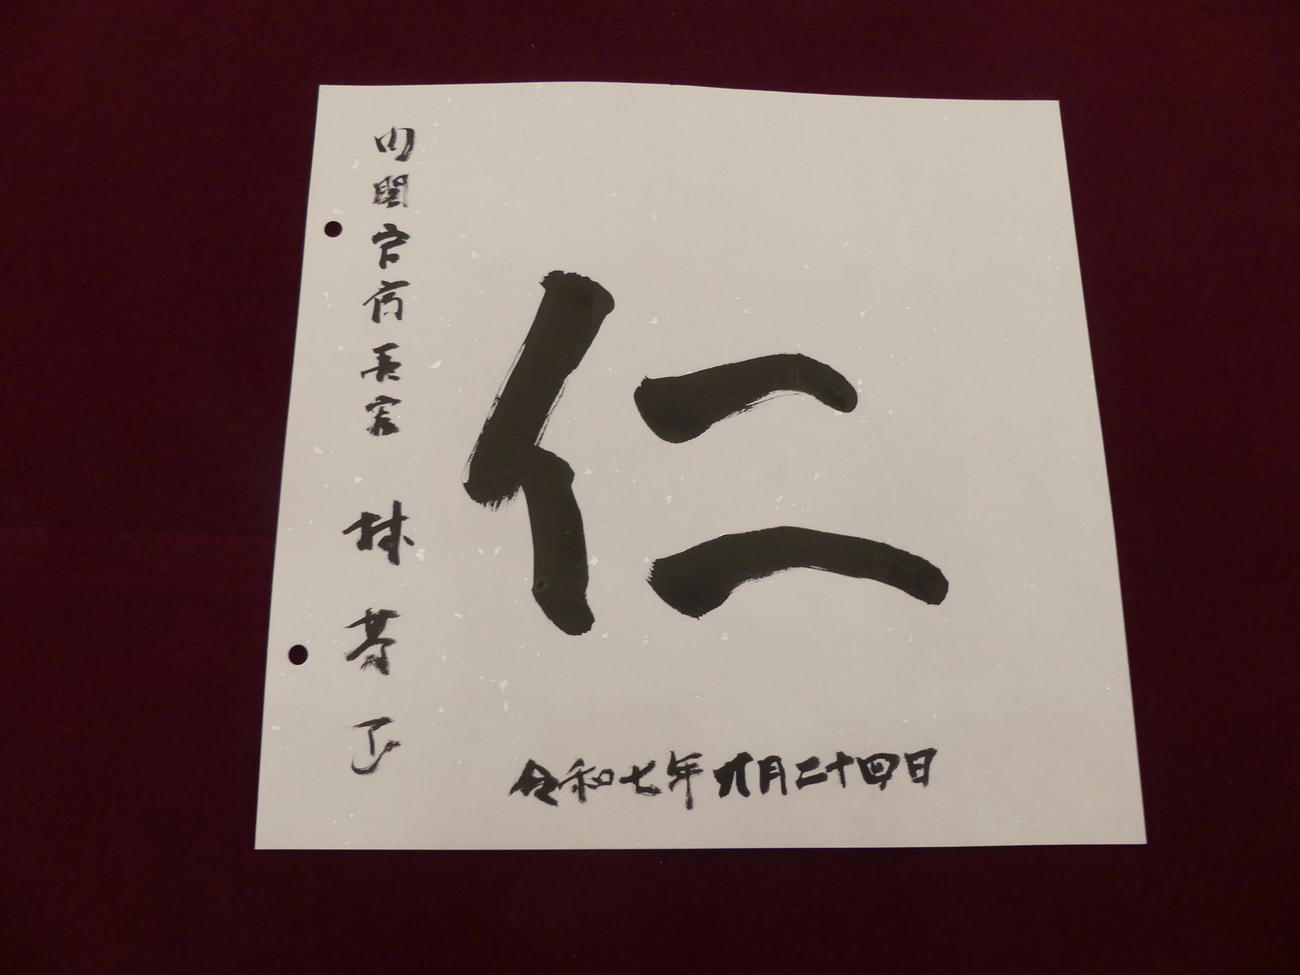 仁
内閣官房長官 林 芳正
令和七年九月二十四日